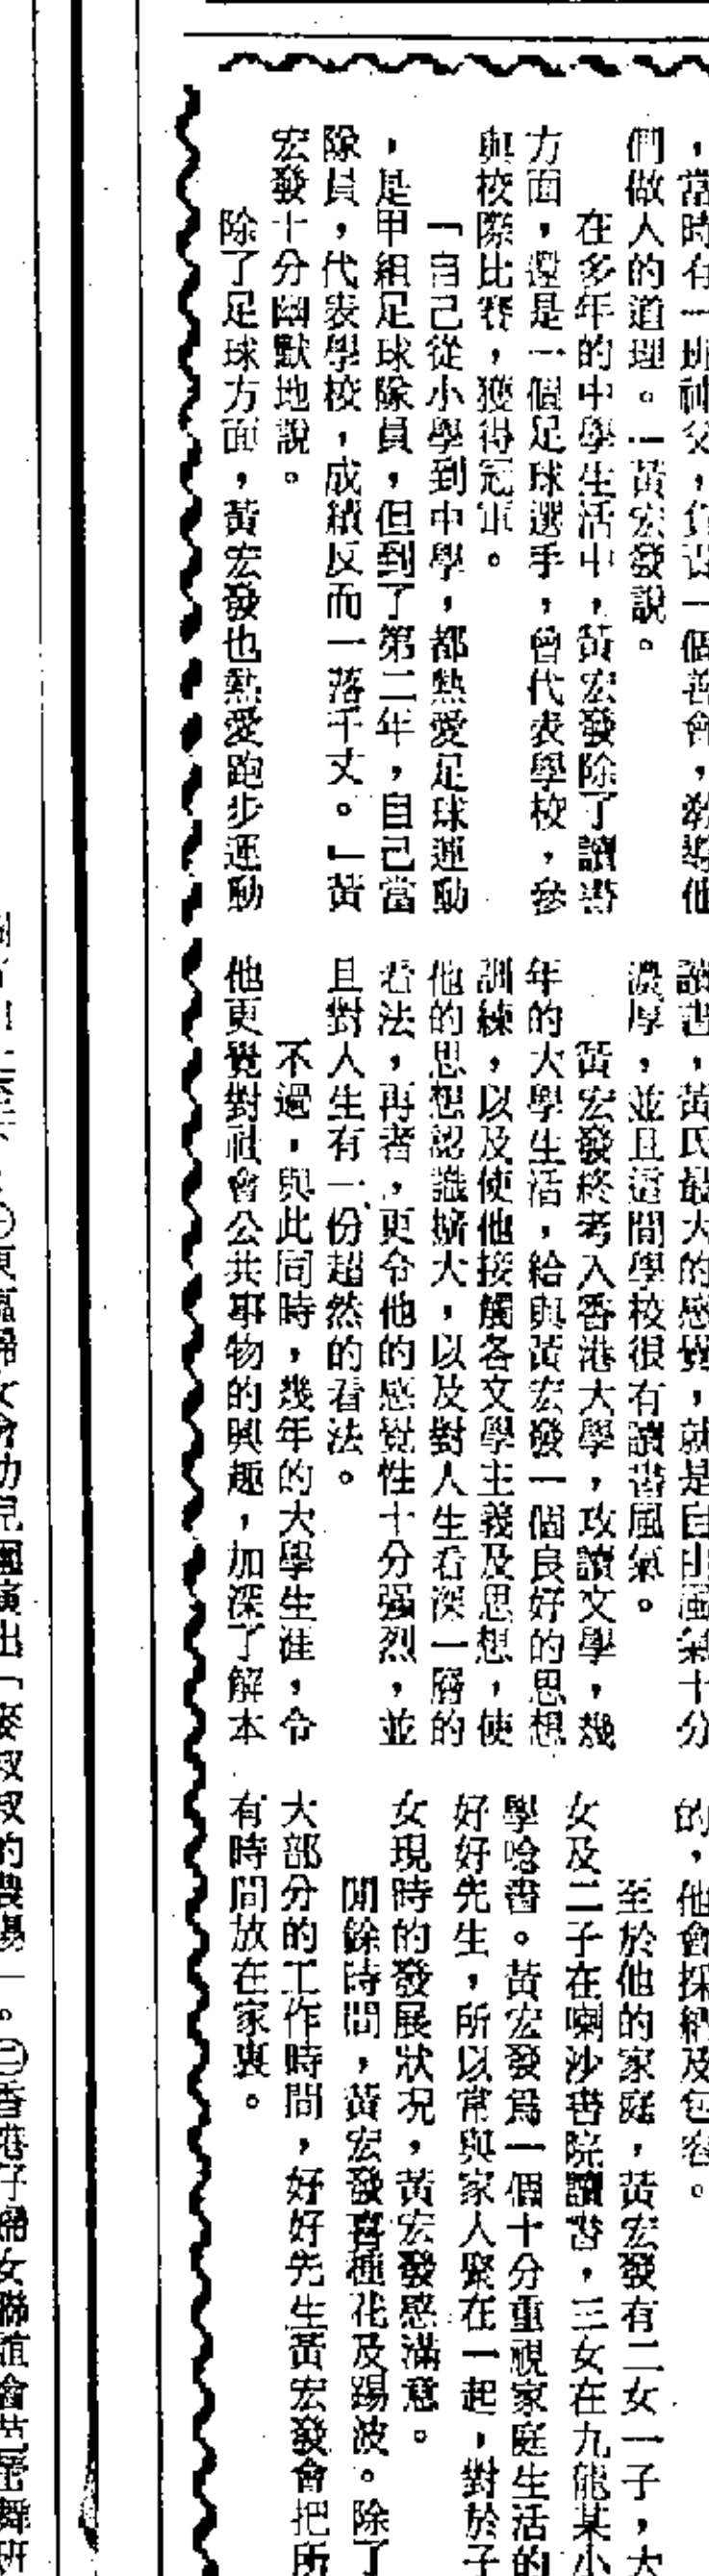 ，當時有一班神父，負責一個善會，教導他
們做人的道理。」黃宏發說。
在多年的中學生活中，黃宏發除了讀書
方面，還是一個足球選手，曾代表學校，參
與校際比賽，獲得冠軍。
「自己從小學到中學，都熱愛足球運動
，是甲組足球隊員，但到了第二年，自己當
隊員，代表學校，成績反而一落千丈。」黃
宏發十分幽默地說。
除了足球方面，黃宏發也熱愛跑步運動
讀書，黃氏最大的感覺，就是自由風氣十分
濃厚，並且這間學校很有讀書風氣。
黃宏發終考入香港大學，攻讀文學，幾
年的大學生活，給與黃宏發一個良好的思想
訓練，以及使他接觸各文學主義及思想，使
他的思想認識擴大，以及對人生看深一層的
看法，再者，更令他的感覺性十分强烈，並
且對人生有一份超然的看法。
不過，與此同時，幾年的大學生涯，令
他更覺對社會公共事物的興趣，加深了解本
的，他會採納及包容。
至於他的家庭，黃宏發有二女一子，大
女及二子在喇沙書院讀書，三女在九龍某小
學唸書。黃宏發爲一個十分重視家庭生活的
好好先生，所以常與家人聚在一起，對於子
女現時的發展狀况，黃宏發感滿意。
閒餘時間，黃宏發喜種花及踢波。除了
大部分的工作時間，好好先生黃宏發會把所
有時間放在家裏。
㊀東區婦女會幼兒園演出「麥叔叔的農場」。㊁香港仔婦女聯誼會芭蕾舞班